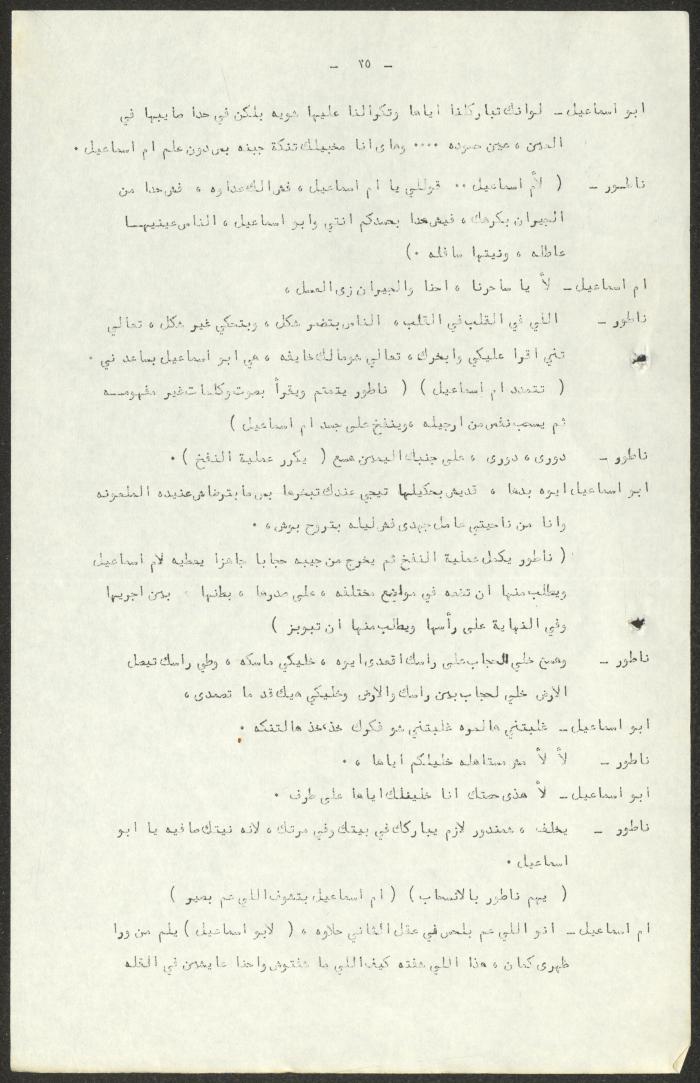 - ٢٥ -
ابو اسماعيل - لوانك تباركلنا اياها وتكرألنا عليها شويه بلكن في حدا مايبها في
العين ، عين حسوده ٠٠٠٠ وهاى انا مخبيلك تنكة جبنه بس دون علم ام اسماعيل ٠
ناطــور - ( لأم اسماعيل ٠٠ قوللي يا ام اسماعيل ، فش الك عداوه ، فش حدا من
الجيران بكرهك ، فيش حدا بحسدكم انتي وابو اسماعيل ، الناس عينيهــا
عاطله ، ونيتها سافله ٠)
ام اسماعيل - لأ يا ساحرنا ، احنا والجيران زى العسل ،
ناطور - اللي في القلب في القلب ، الناس بتضمر شكل ، وبتحكي غير شكل ، تعالي
تني اقرا عليكي وابخرك ، تعالي شومالك خايفه ، هي ابو اسماعيل بساعد ني ٠
( تتمدد ام اسماعيل ) ( ناطور يتمتم ويقرأ بصوت وكلمات غير مفهومــه
ثم يسحب نفس من ارجيله وينفخ على جسد ام اسماعيل )
ناطور - دورى ، دورى ، على جنبك اليمين هسع ( يكرر عملية النفخ ) ٠
ابو اسماعيل ايوه بدها ، قديش بحكيلها تيجي عندك تبخرها بس ما بترضاش عنيده الملعونه
وانا من ناحيتي عامل جهدى فش ليله بتروح بوش ، ٠
( ناطور يكمل عملية النفخ ثم يخرج من جيبه حجابا جاهزا يعطيه لام اسماعيل
ويطلب منها ان تضعه في مواضع مختلفه ، على صدرها ، بطنها ، بين اجريها
وفي النهاية على رأسها ويطلب منها ان تبوبز )
ناطور - وهسع خلي الحجاب على راسك اقعدى ايوه ، خليكي ماسكه ، وطي راسك تيصل
الارض خلي لحجاب بين راسك والارض وخليكي هيك قد ما تصمدى ،
ابو اسماعيل - غلبتني هالمره غلبتني شو فكرك خذ،خذ هالتنكه ٠
ناطور - لأ لأ مش مستاهله خليلكم اياها ، ٠
ابو اسماعيل - لأ هذى حصتك انا خليلك اياها على طرف ٠
ناطور - يخلف ، شمندور لازم يباركك في بيتك وفي مرتك ، لانه نيتك صافيه يا ابو
اسماعيل ٠
( يهم ناطور بالانسحاب ) ( ام اسماعيل بتشوف اللي عم بصير )
ام اسماعيل - انو اللي عم بلحس في عقل الثاني حلاوه ، ( لابو اسماعيل ) يلم من ورا
ظهرى كمان ، هذا اللي شفته كيف اللي ما شفتوش واحنا عايشين في القله